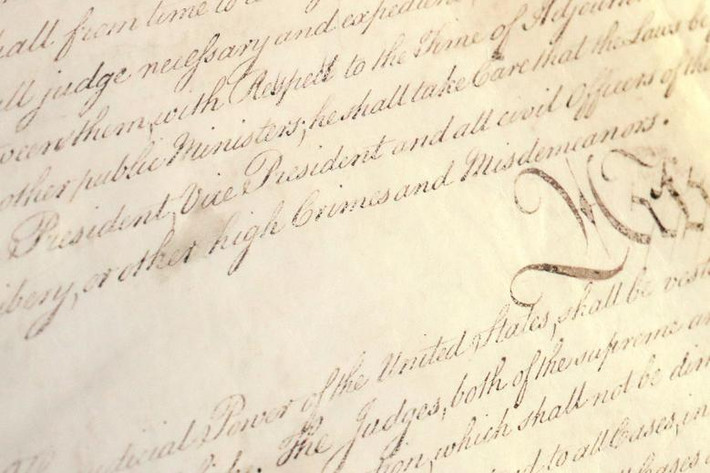 hall from time to
ll judge necessary and expedient
ween them, with Respect to the Time of Adjourn
other public Ministers; he shall take Care that the Laws be
President, Vice President and all civil Officers of the
ibery, or other high Crimes and Misdemeanors.
dicial Power of the United States, shall be vest
The Judges, both of the supreme an
which shall not be dim
to all Cases, in
Cases